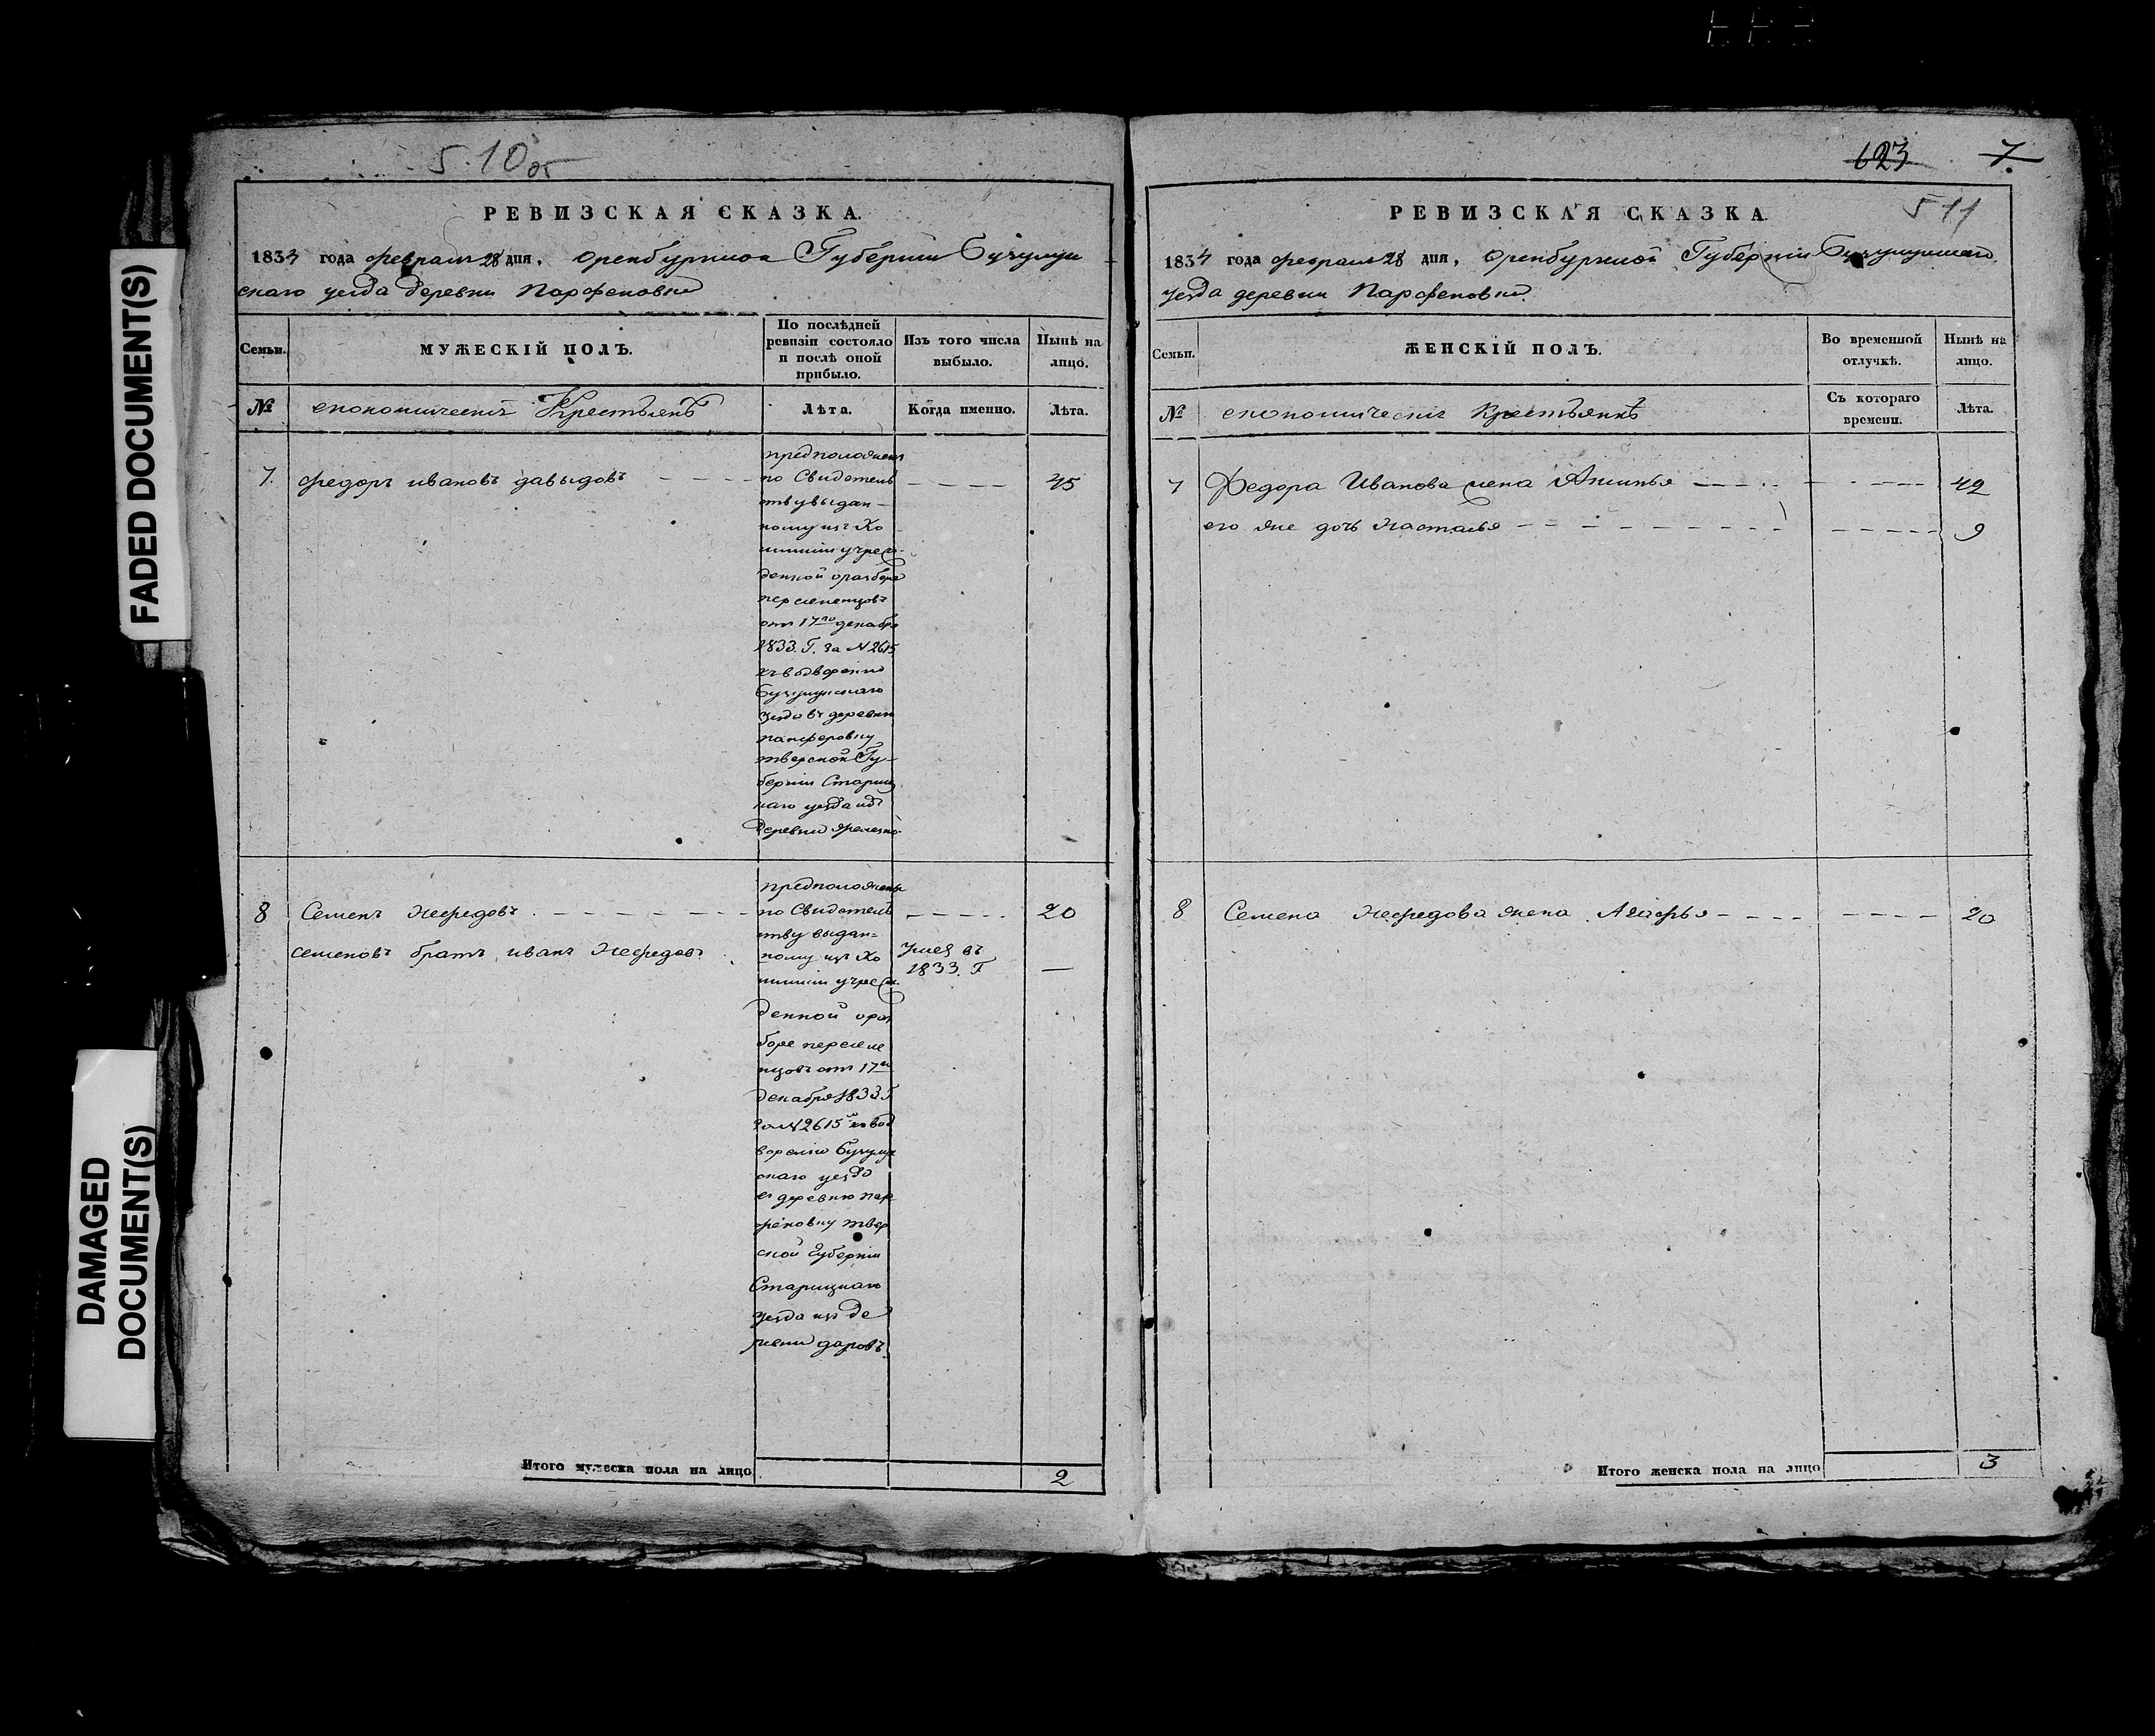 FADED DOCUMENT(S)
DAMAGED
DOCUMENT(S)
510 об
РЕВИЗСКАЯ СКАЗКА.
1834 года февраля 28 дня, Оренбургской Губернии Бузулук
скаго уезда деревни Парфеновки
Семьи.
МУЖЕСКІЙ ПОЛЪ.
По послѣдней
ревизіи состояло
и послѣ оной
прибыло.
Изъ того числа
выбыло.
Нынѣ на
лицо.
№
економическихъ Крестьянъ
Лѣта.
Когда именно.
Лѣта.
7. федоръ ивановъ давыдовъ 45
предположены
по Свидетель
ству выдан-
ному изъ Ко
мишии учреж-
денной о разборе
переселенцовъ
отъ 17го декабря
1833. Г. за № 2615
къ водворению
Бузулукскаго
уезда въ деревню
панферовку
тверской Гу-
бернии Стариц
каго уезда изъ
деревни
8 Семенъ Нефедовъ 20
семеновъ братъ иванъ Нефедовъ
Умеръ въ
1833. Г
предположены
по Свидетель
ству выдан=
ному изъ Ко
мишии учреж.
денной о раз
боре переселе
нцовъ отъ 17го
декабря 1833 Г
за № 2615 к вод
ворению Бузулук
скаго уезда
въ деревню пар
феновку твер
ской Губернии
Старицкаго
уезда изъ де
ревни даровъ
Итого мужеска пола на лицо 2
623 7.
511
РЕВИЗСКАЯ СКАЗКА.
1834 года февраля 28 дня, Оренбургской Губернии Бузулукскаго
уезда деревни Парфеновки.
Семьи.
ЖЕНСКІЙ ПОЛЪ.
Во временной
отлучкѣ.
Нынѣ на
лицо.
№
економическихъ Крестьянкъ
Съ котораго
времени.
Лѣта.
7 Федора Иванова жена Аксинья 42
его же дочь Настасья 9
8 Семена Нефедова жена Агафья 20
Итого женска пола на лицо 3